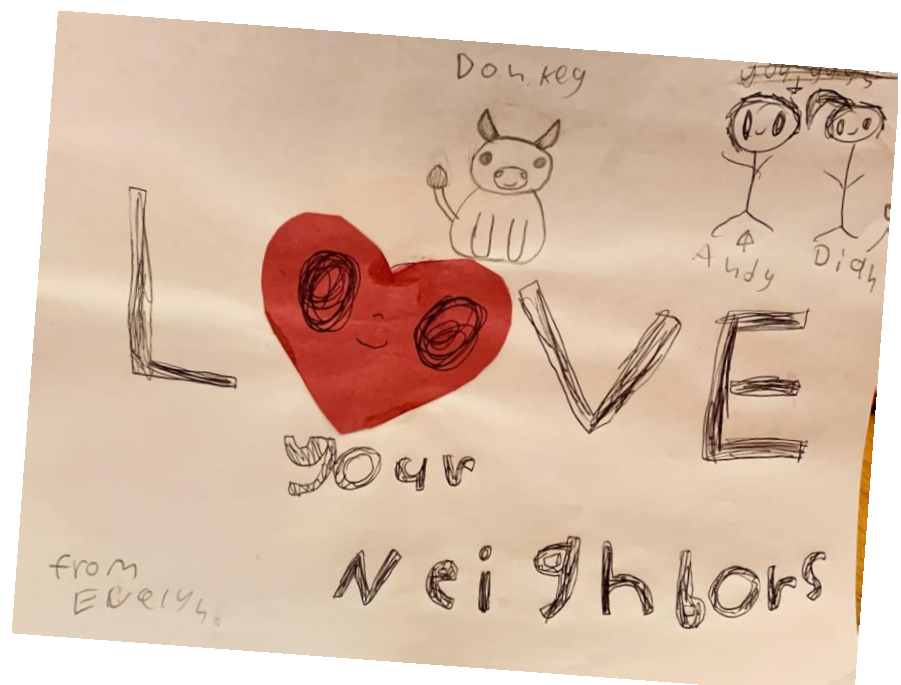 Donkey
you guys
Andy Diah
LOVE
your
Neighbors
from
Evelyn.